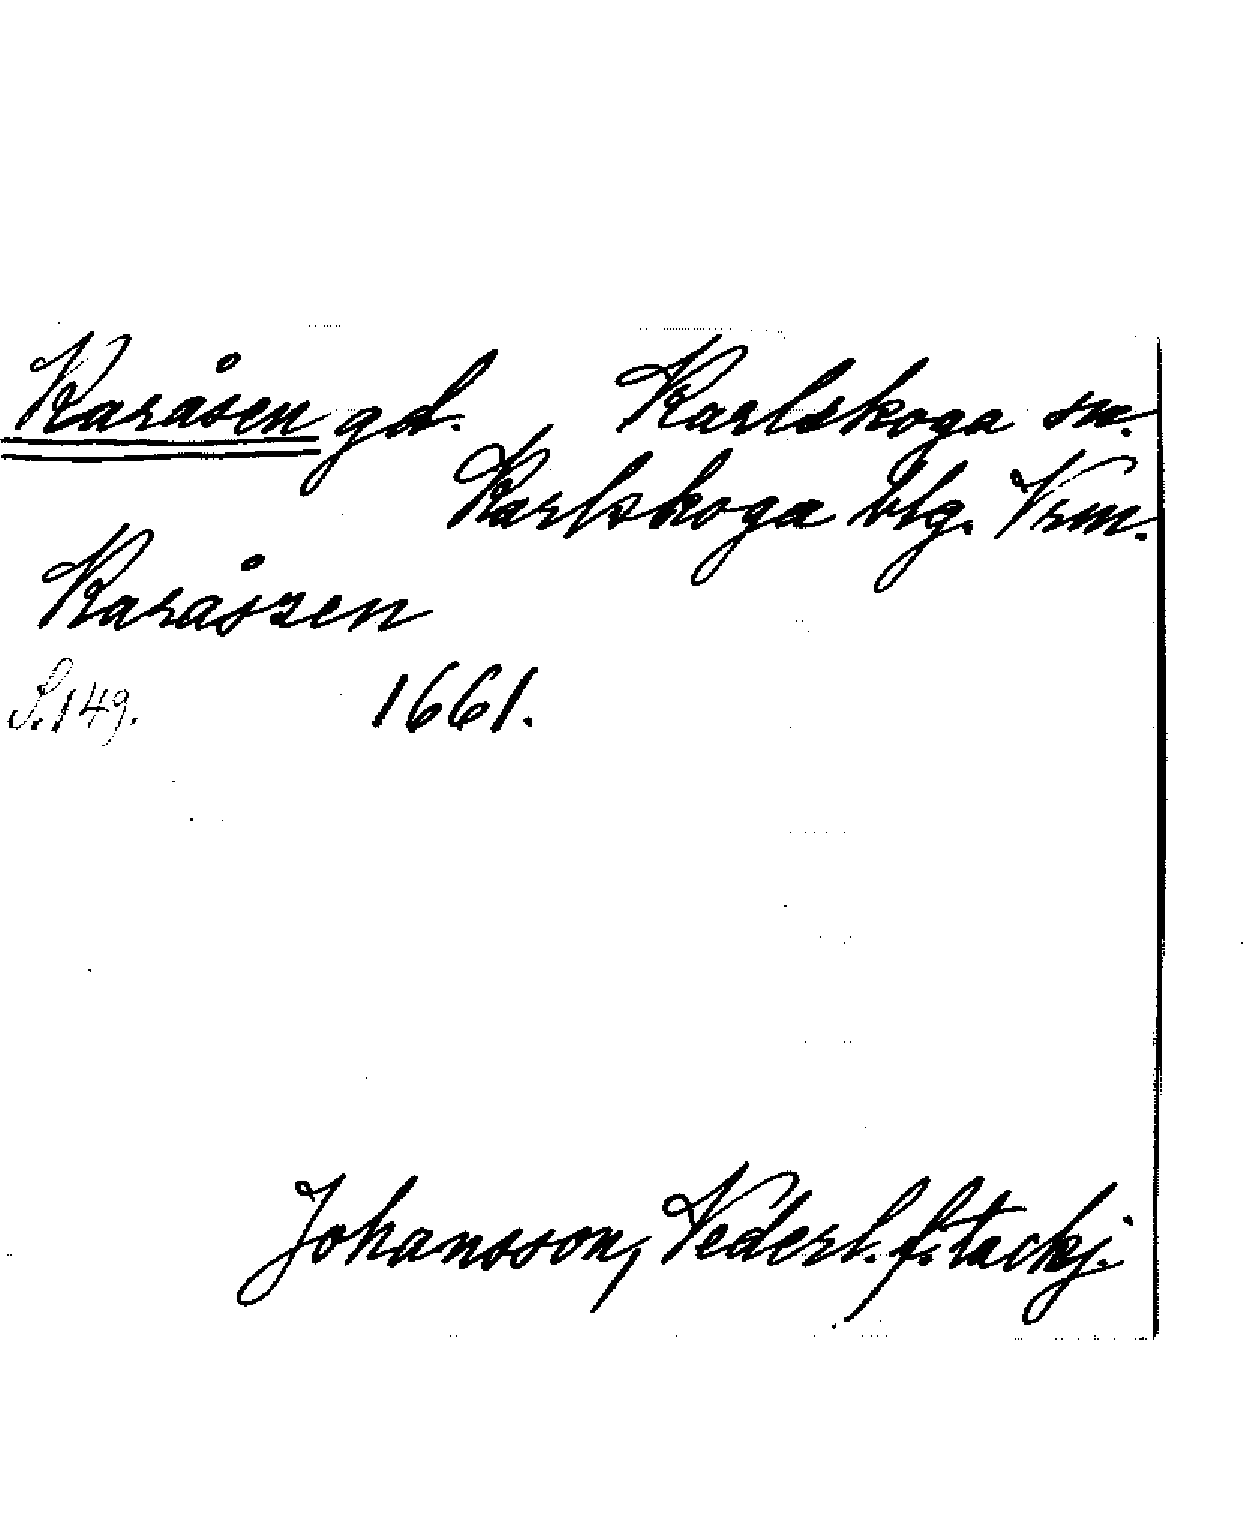 Karåsen gd. Karlskoga sn.
Karlskoga blg. Vrm.
Karåszen
S. 149. 1661.
Johansson, Vederl. f. tackj.